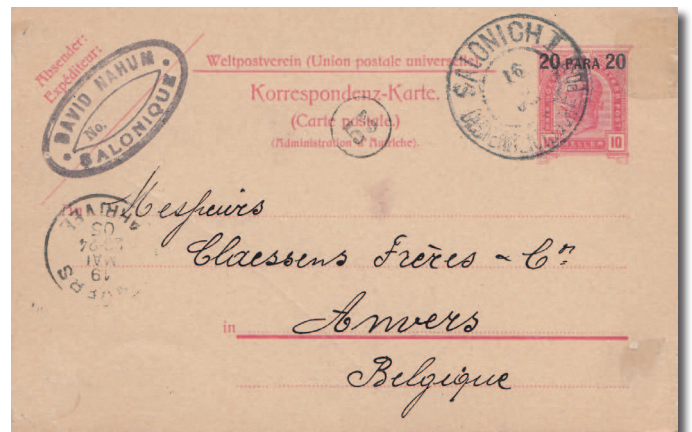 Absender:
Expéditeur:
DAVID NAHUM
No.
SALONIQUE
Weltpostverein (Union postale universelle)
Korrespondenz-Karte.
(Carte postale.)
(Administration d'Autriche).
SALONICH I
16
20 PARA 20
10
HELLER
An Messieurs
Claessens Frères & Cie
in Anvers
Belgique
ANVERS
19
MAI
05
ARRIVÉE